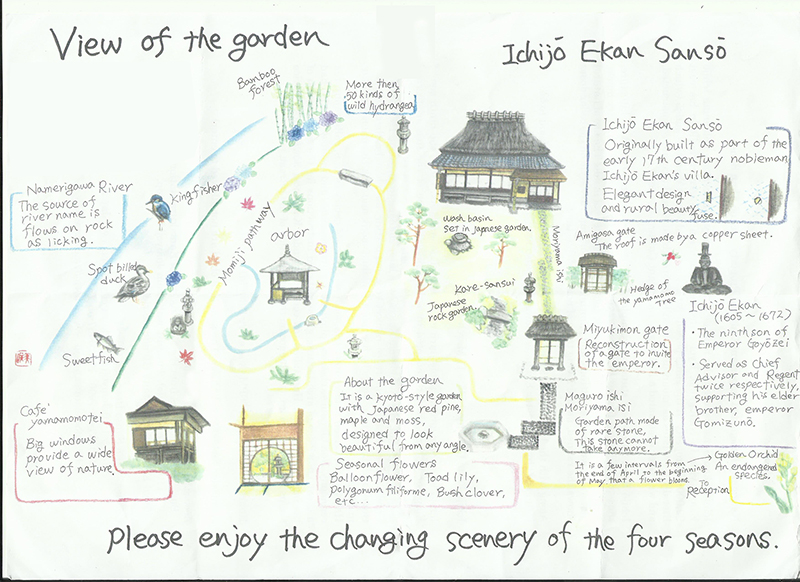 View of the garden
Ichijō Ekan Sansō
Bamboo
forest
More then
50 kinds of
wild hydrangea
Namerigawa River
The source of
river name is
flows on rock
as licking.
kingfisher
Spot billed
duck
Sweetfish
Momiji pathway
arbor
wash basin
set in Japanese garden
Kare-sansui
Japanese
rock garden
Moriyama ishi
Ichijō Ekan Sansō
Originally built as part of the
early 17th century nobleman
Ichijō Ekan's villa.
Elegant design
and rural beauty
fuse.
Amigasa gate
The roof is made by a copper sheet.
Hedge of
the yamamomo
Tree
Miyukimon gate
Reconstruction
of a gate to invite
the emperor.
Ichijō Ekan
(1605~1672)
・The ninth son of
Emperor Goyōzei
・Served as Chief
Advisor and Regent
twice respectively,
supporting his elder
brother, emperor
Gomizunō.
Maguro ishi
Moriyama isi
Garden path made
of rare stone,
This stone cannot
take anymore.
Café
yamamomotei
Big windows
provide a wide
view of nature.
About the garden
It is a kyoto-style garden
with Japanese red pine,
maple and moss,
designed to look
beautiful from any angle.
Seasonal flowers
Balloonflower, Toad lily,
polygonum filiforme, Bush clover,
etc...
It is a few intervals from
the end of April to the beginning
of May that a flower blooms.
Golden Orchid
An endangered
species.
To
Reception
Please enjoy the changing scenery of the four seasons.